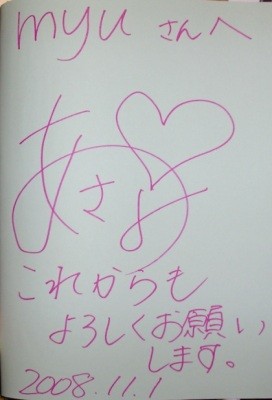 myuさんへ
あさよ
これからも
よろしくお願い
します。
2008.11.1